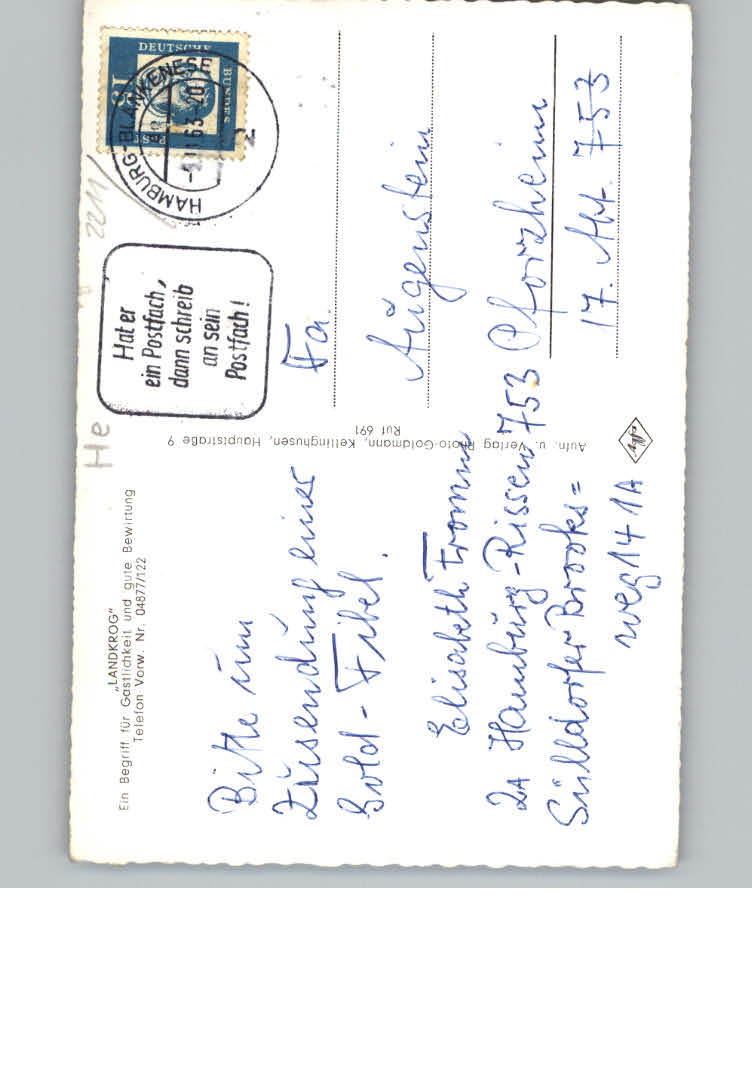 „LANDKROG"
Ein Begriff für Gastlichkeit und gute Bewirtung
Telefon Vorw. Nr. 04877/122
Bitte um
Zusendung einer
Gold-Fibel.
Elisabeth Fromm
2A Hamburg-Rissen 753
Sülldorfer Brooks=
weg 141A
Aufn. u. Verlag Photo-Goldmann, Kellinghusen, Hauptstraße 9
Ruf 691
Agfa
He
2211
Hat er
ein Postfach,
dann schreib
an sein
Postfach!
HAMBURG-BLANKENESE
11.63-20
2
DEUTSCHE
BUNDES
POST
15
Fa.
Augenstein
Pforzheim
17. Abt. 753